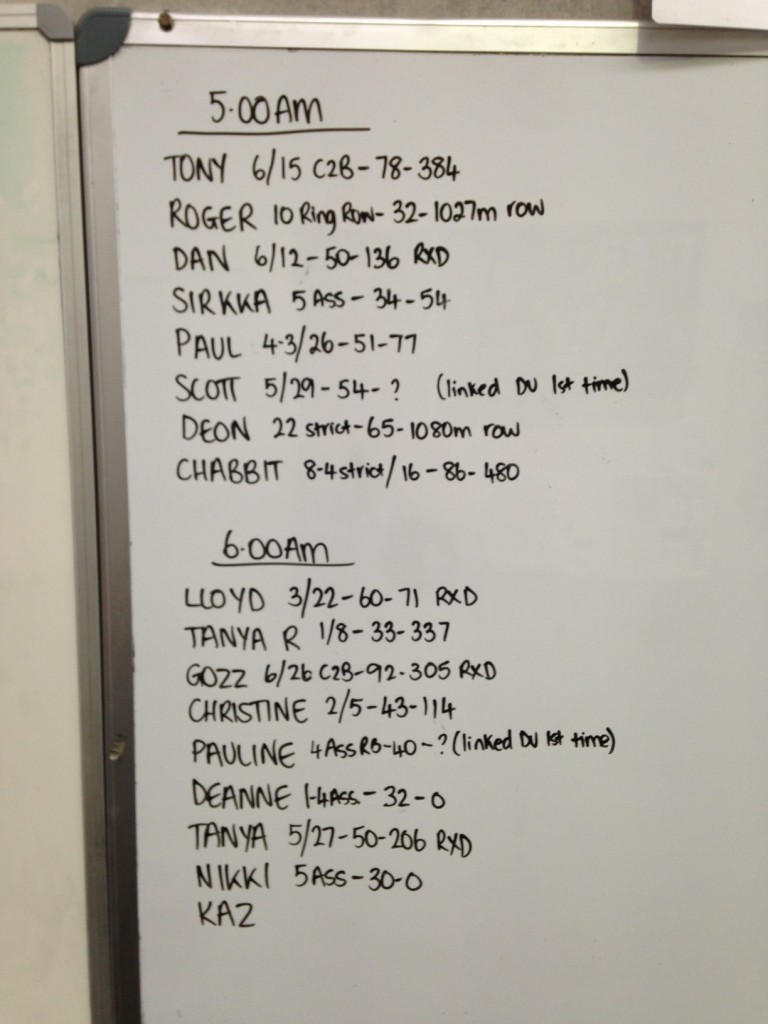 5.00AM
TONY 6/15 C2B-78-384
ROGER 10 Ring Row-32-1027m row
DAN 6/12-50-136 RXD
SIRKKA 5 ASS-34-54
PAUL 4-3/26-51-77
SCOTT 5/29-54-? (linked DU 1st time)
DEON 22 strict-65-1080m row
CHABBIT 8-4strict/16-86-480
6.00AM
LLOYD 3/22-60-71 RXD
TANYA R 1/8-33-337
GOZZ 6/26 C2B-92-305 RXD
CHRISTINE 2/5-43-114
PAULINE 4 ASS RB-40-? (linked DU 1st time)
DEANNE 1-4ASS.-32-0
TANYA 5/27-50-206 RXD
NIKKI 5 ASS-30-0
KAZ